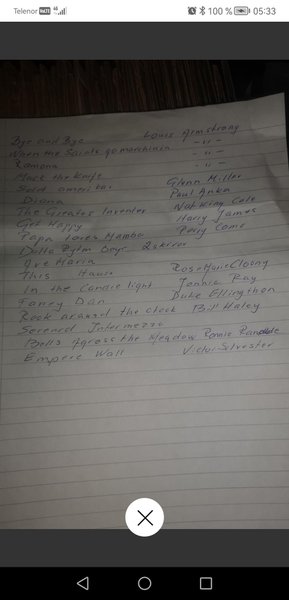 Telenor VoLTE 4G 100 % 05:33
Bye and Bye Louis Armstrong
When the Saints go marchinin -"-
Ramona -"-
Mack the Knife
Sold amerika Glenn Miller
Diana Paul Anka
The Greates Inventer Nat King Cole
Get Happy Harry James
Papa Loves Mambo Perry Como
Delta Rytm Boys 2 skivor
Ave Maria
This House Rose Marie Cloony
In the Candle light Jonnie Ray
Fancy Dan Duke Ellingthon
Rock around the clock Bil Haley
Serened Intermezzo
Bells Across the Meadow Ronnie
Empere Wall Victor Silvester